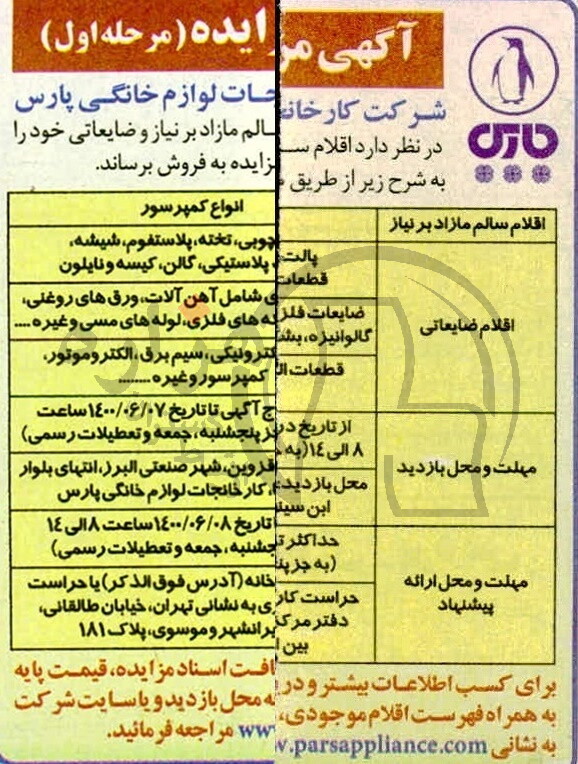 آگهی مزایده (مرحله اول)
پارس
شرکت کارخانجات لوازم خانگی پارس
در نظر دارد اقلام سالم مازاد بر نیاز و ضایعاتی خود را
به شرح زیر از طریق مزایده به فروش برساند.
اقلام سالم مازاد بر نیاز
انواع کمپرسور
اقلام ضایعاتی
پالت چوبی، تخته، پلاستفوم، شیشه،
قطعات پلاستیکی، گالن، کیسه و نایلون
ضایعات فلزی شامل آهن آلات، ورق های روغنی،
گالوانیزه، بشکه های فلزی، لوله های مسی و غیره ....
قطعات الکترونیکی، سیم برق، الکتروموتور،
کمپرسور و غیره ........
مهلت و محل بازدید
از تاریخ درج آگهی تا تاریخ ۱۴۰۰/۰۶/۰۷ ساعت
۸ الی ۱۴ (به جز پنجشنبه، جمعه و تعطیلات رسمی)
محل بازدید: قزوین، شهر صنعتی البرز، انتهای بلوار
ابن سینا، کارخانجات لوازم خانگی پارس
مهلت و محل ارائه
پیشنهاد
حداکثر تا تاریخ ۱۴۰۰/۰۶/۰۸ ساعت ۸ الی ۱۴
(به جز پنجشنبه، جمعه و تعطیلات رسمی)
حراست کارخانه (آدرس فوق الذکر) یا حراست
دفتر مرکزی به نشانی تهران، خیابان طالقانی،
بین ایرانشهر و موسوی، پلاک ۱۸۱
برای کسب اطلاعات بیشتر و دریافت اسناد مزایده، قیمت پایه
به همراه فهرست اقلام موجودی، به محل بازدید و یا سایت شرکت
به نشانی www.parsappliance.com مراجعه فرمائید.